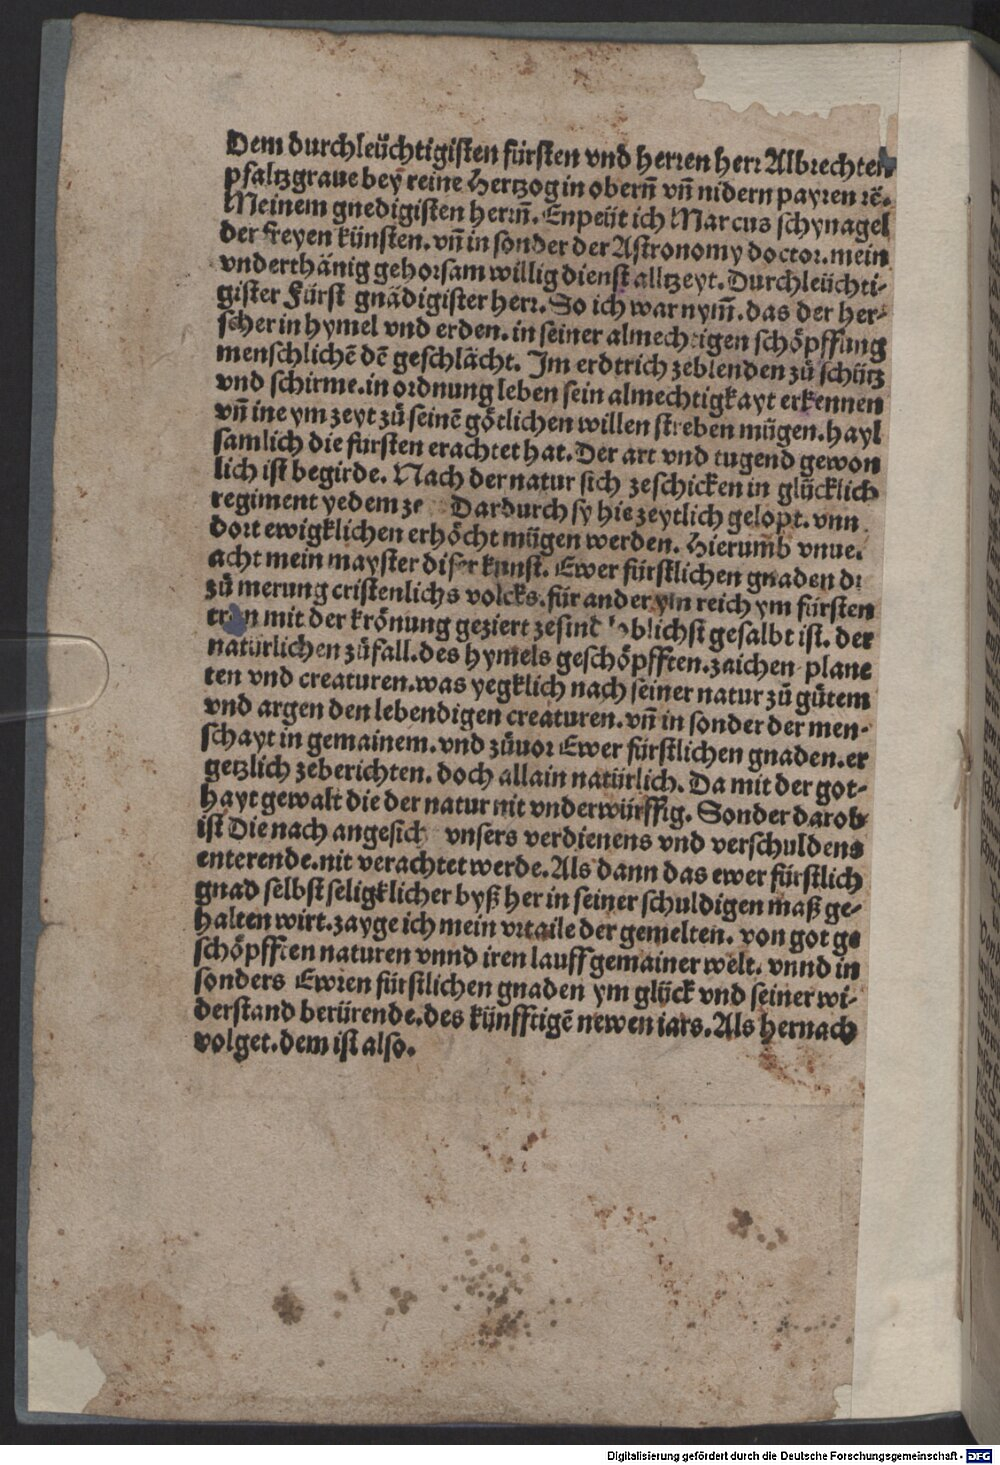 Dem durchleüchtigisten fürsten vnd herren herr Albrechten
pfaltzgraue bey reine Hertzog in obern̄ vn̄ nidern payren rē.
Meinem gnedigisten herrn̄. Enpeüt ich Marcus schynagel
der freyen künsten. vn̄ in sonder der Astronomy doctor. mein
vnderthänig gehorsam willig dienst alltzeyt. Durchleüchti-
gister Fürst gnädigister herr. So ich war nym̄. das der her-
scher in hymel vnd erden. in seiner almechtigen schöpffung
menschlichē dē geschlächt. Im erdtrich zeblenden zů schütz
vnd schirme. in ordnung leben sein almechtigkayt erkennen
vn̄ ine ym zeyt zů seinē götlichen willen streben mügen. hayl
samlich die fursten erachtet hat. Der art vnd tugend gewon
lich ist begirde. Nach der natur sich zeschicken in glücklich
regiment yedem ze Dardurch sy hie zeytlich gelopt. vnn
dort ewigklichen erhöcht mügen werden. Hierumb vnue.
acht mein mayster diser kunst. Ewer fürstlichen gnaden
zů merung cristenlichs volcks. für ander ym reich ym fürsten
mit der krönung geziert zesind loblichst gesalbt ist. der
natürlichen zůfall. des hymels geschöpfften. zaichen plane
ten vnd creaturen. was yegklich nach seiner natur zů gůtem
vnd argen den lebendigen creaturen. vn̄ in sonder der men-
schayt in gemainem. vnd zůuor Ewer fürstlichen gnaden. er
getzlich zeberichten. doch allain natürlich. Da mit der got-
hayt gewalt die der natur nit vnderwürffig. Sonder darob
ist Die nach angesich vnsers verdienens vnd verschuldens
enterende. nit verachtet werde. Als dann das ewer fürstlich
gnad selbst seligklicher byß her in seiner schuldigen maß ge-
halten wirt. zayge ich mein vrtaile der gemelten. von got ge
schöpfften naturen vnnd iren lauff gemainer welt. vnnd in
sonders Ewren fürstlichen gnaden ym glück vnd seiner wi-
derstand berürende. des künfftigē newen iars. Als hernach
volget. dem ist also.
Digitalisierung gefördert durch die Deutsche Forschungsgemeinschaft - DFG